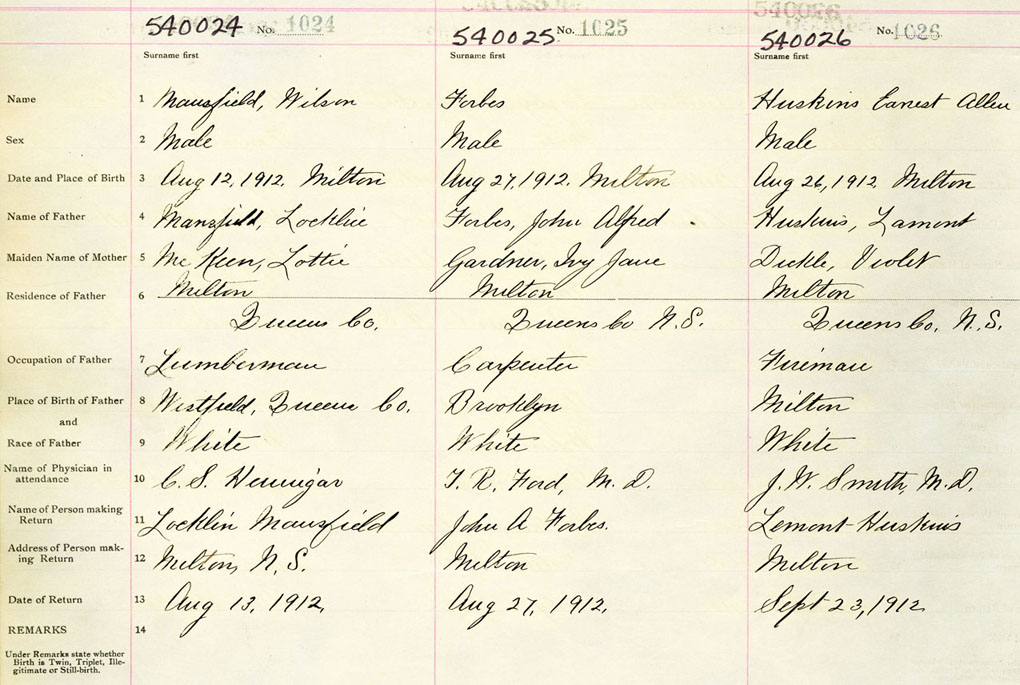 540024 No. 1024 540025 No. 1025 540026 No. 1026
Surname first Surname first Surname first
Name 1 Mansfield, Wilson Forbes Huskins Earnest Allen
Sex 2 Male Male Male
Date and Place of Birth 3 Aug 12, 1912. Milton Aug 27, 1912. Milton Aug 26, 1912 Milton
Name of Father 4 Mansfield, Locklin Forbes, John Alfred Huskins, Lamont
Maiden Name of Mother 5 McKeen, Lottie Gardner, Ivy Jane Dickie, Violet
Residence of Father 6 Milton Milton Milton
Queens Co. Queens Co N.S. Queens Co, N.S.
Occupation of Father 7 Lumberman Carpenter Fireman
Place of Birth of Father 8 Westfield, Queens Co. Brooklyn Milton
and
Race of Father 9 White White White
Name of Physician in
attendance 10 C. S. Hennigar T. R. Ford, M.D. J. W. Smith, M.D.
Name of Person making
Return 11 Locklin Mansfield John A Forbes. Lemont Huskins
Address of Person mak-
ing Return 12 Milton, N.S. Milton Milton
Date of Return 13 Aug 13, 1912, Aug 27, 1912, Sept 23, 1912
REMARKS 14
Under Remarks state whether
Birth is Twin, Triplet, Ille-
gitimate or Still-birth.